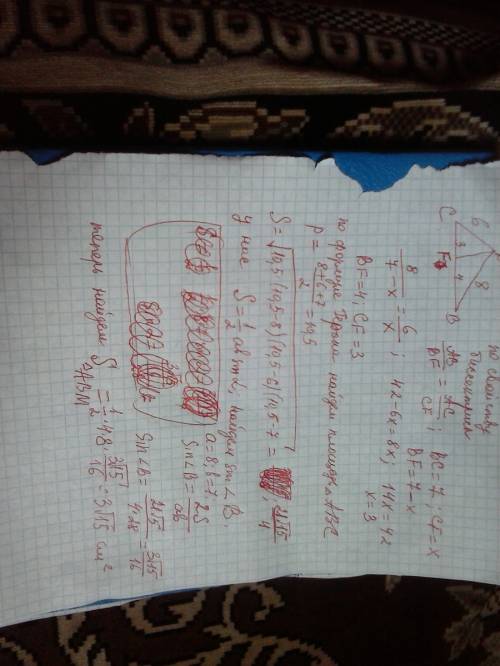 по свойству
биссектрисы
6
8
3
4
C
F
B
AB/BF = AC/CF ; BC=7 ; CF=x
BF=7-x
8/7-x = 6/x ; 42-6x=8x; 14x=42
x=3
BF=4; CF=3
по формуле Герона найдем площадь ABC
P= 8+6+7/2 = 10,5
S=√10,5(10,5-8)(10,5-6)(10,5-7 = 21√15/4
S=1/2 ab sin α, найдем sin∠B.
a=8; b=7
Sin∠B= 2S/ab
Sin∠B= 21√15/4·28 = 3√15/16
теперь найдем S = 1/2·4·8·3√15/16=3√15 см²